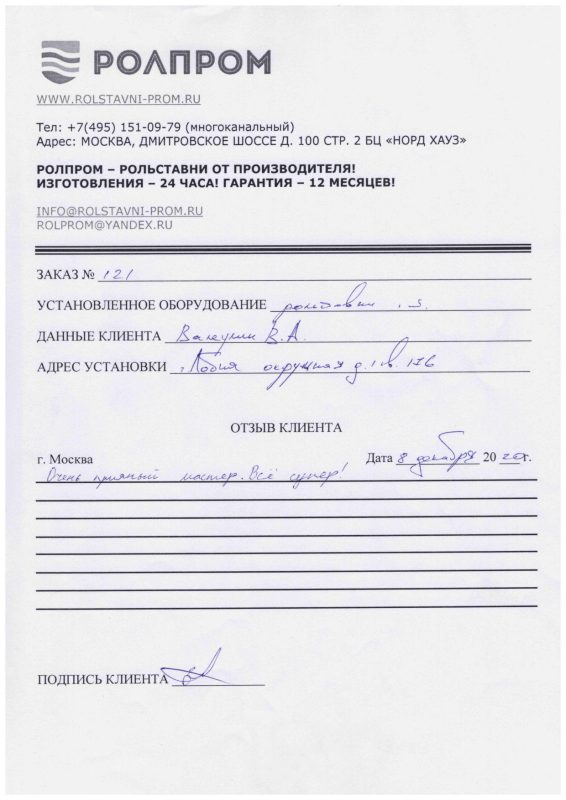 РОЛПРОМ
WWW.ROLSTAVNI-PROM.RU
Тел: +7(495) 151-09-79 (многоканальный)
Адрес: МОСКВА, ДМИТРОВСКОЕ ШОССЕ Д. 100 СТР. 2 БЦ «НОРД ХАУЗ»
РОЛПРОМ – РОЛЬСТАВНИ ОТ ПРОИЗВОДИТЕЛЯ!
ИЗГОТОВЛЕНИЯ – 24 ЧАСА! ГАРАНТИЯ – 12 МЕСЯЦЕВ!
INFO@ROLSTAVNI-PROM.RU
ROLPROM@YANDEX.RU
ЗАКАЗ № 121
УСТАНОВЛЕННОЕ ОБОРУДОВАНИЕ рольставни
ДАННЫЕ КЛИЕНТА В.А.
АДРЕС УСТАНОВКИ г. Лобня окружная д.
ОТЗЫВ КЛИЕНТА
г. Москва Дата 8 декабря 2020г.
Очень приятный мастер. Всё супер!
ПОДПИСЬ КЛИЕНТА